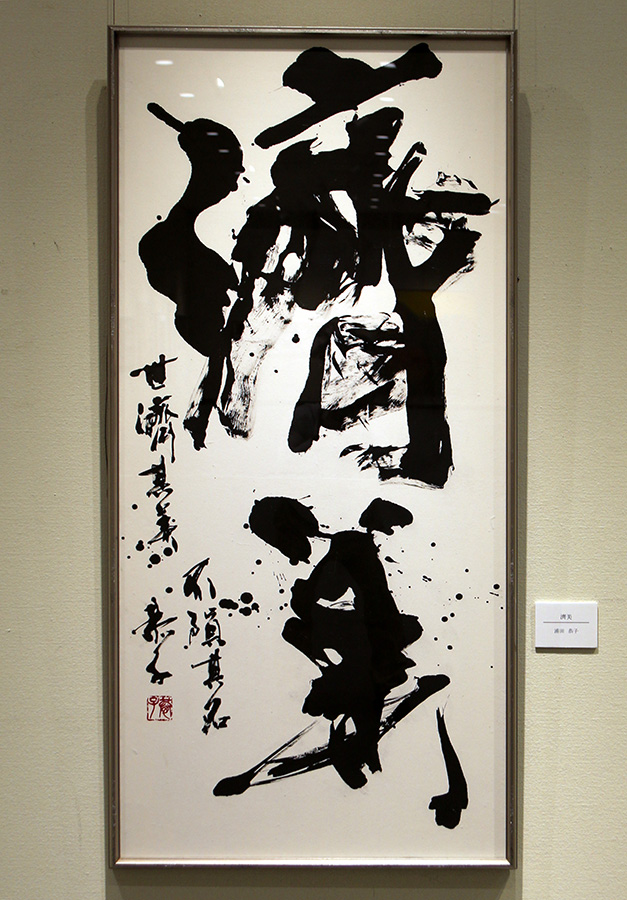 濟美
世濟其美
不隕其名
恭子
濟美
恭子